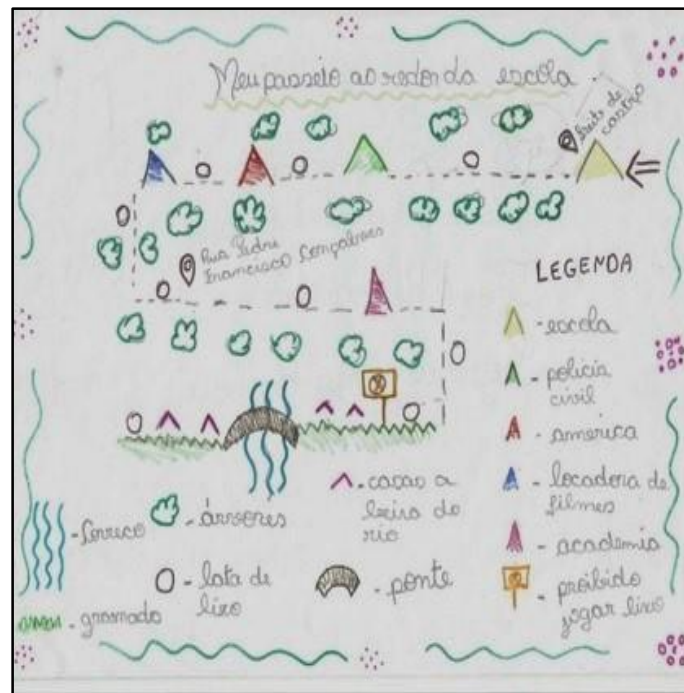 Meu passeio ao redor da escola
Brito de
castro
Rua Pedro
Francisco Gonçalves
LEGENDA
- escola
- policia
civil
- américa
- locadora de
filmes
- academia
- proibido
jogar lixo
- casas a
beira do
rio
- Córrego
- árvores
- lata de
lixo
- ponte
- gramado